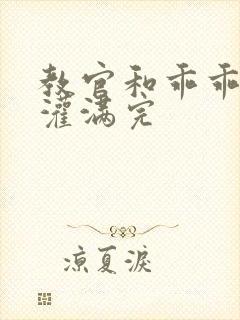 教官和乖乖
灌满完
凉夏淚